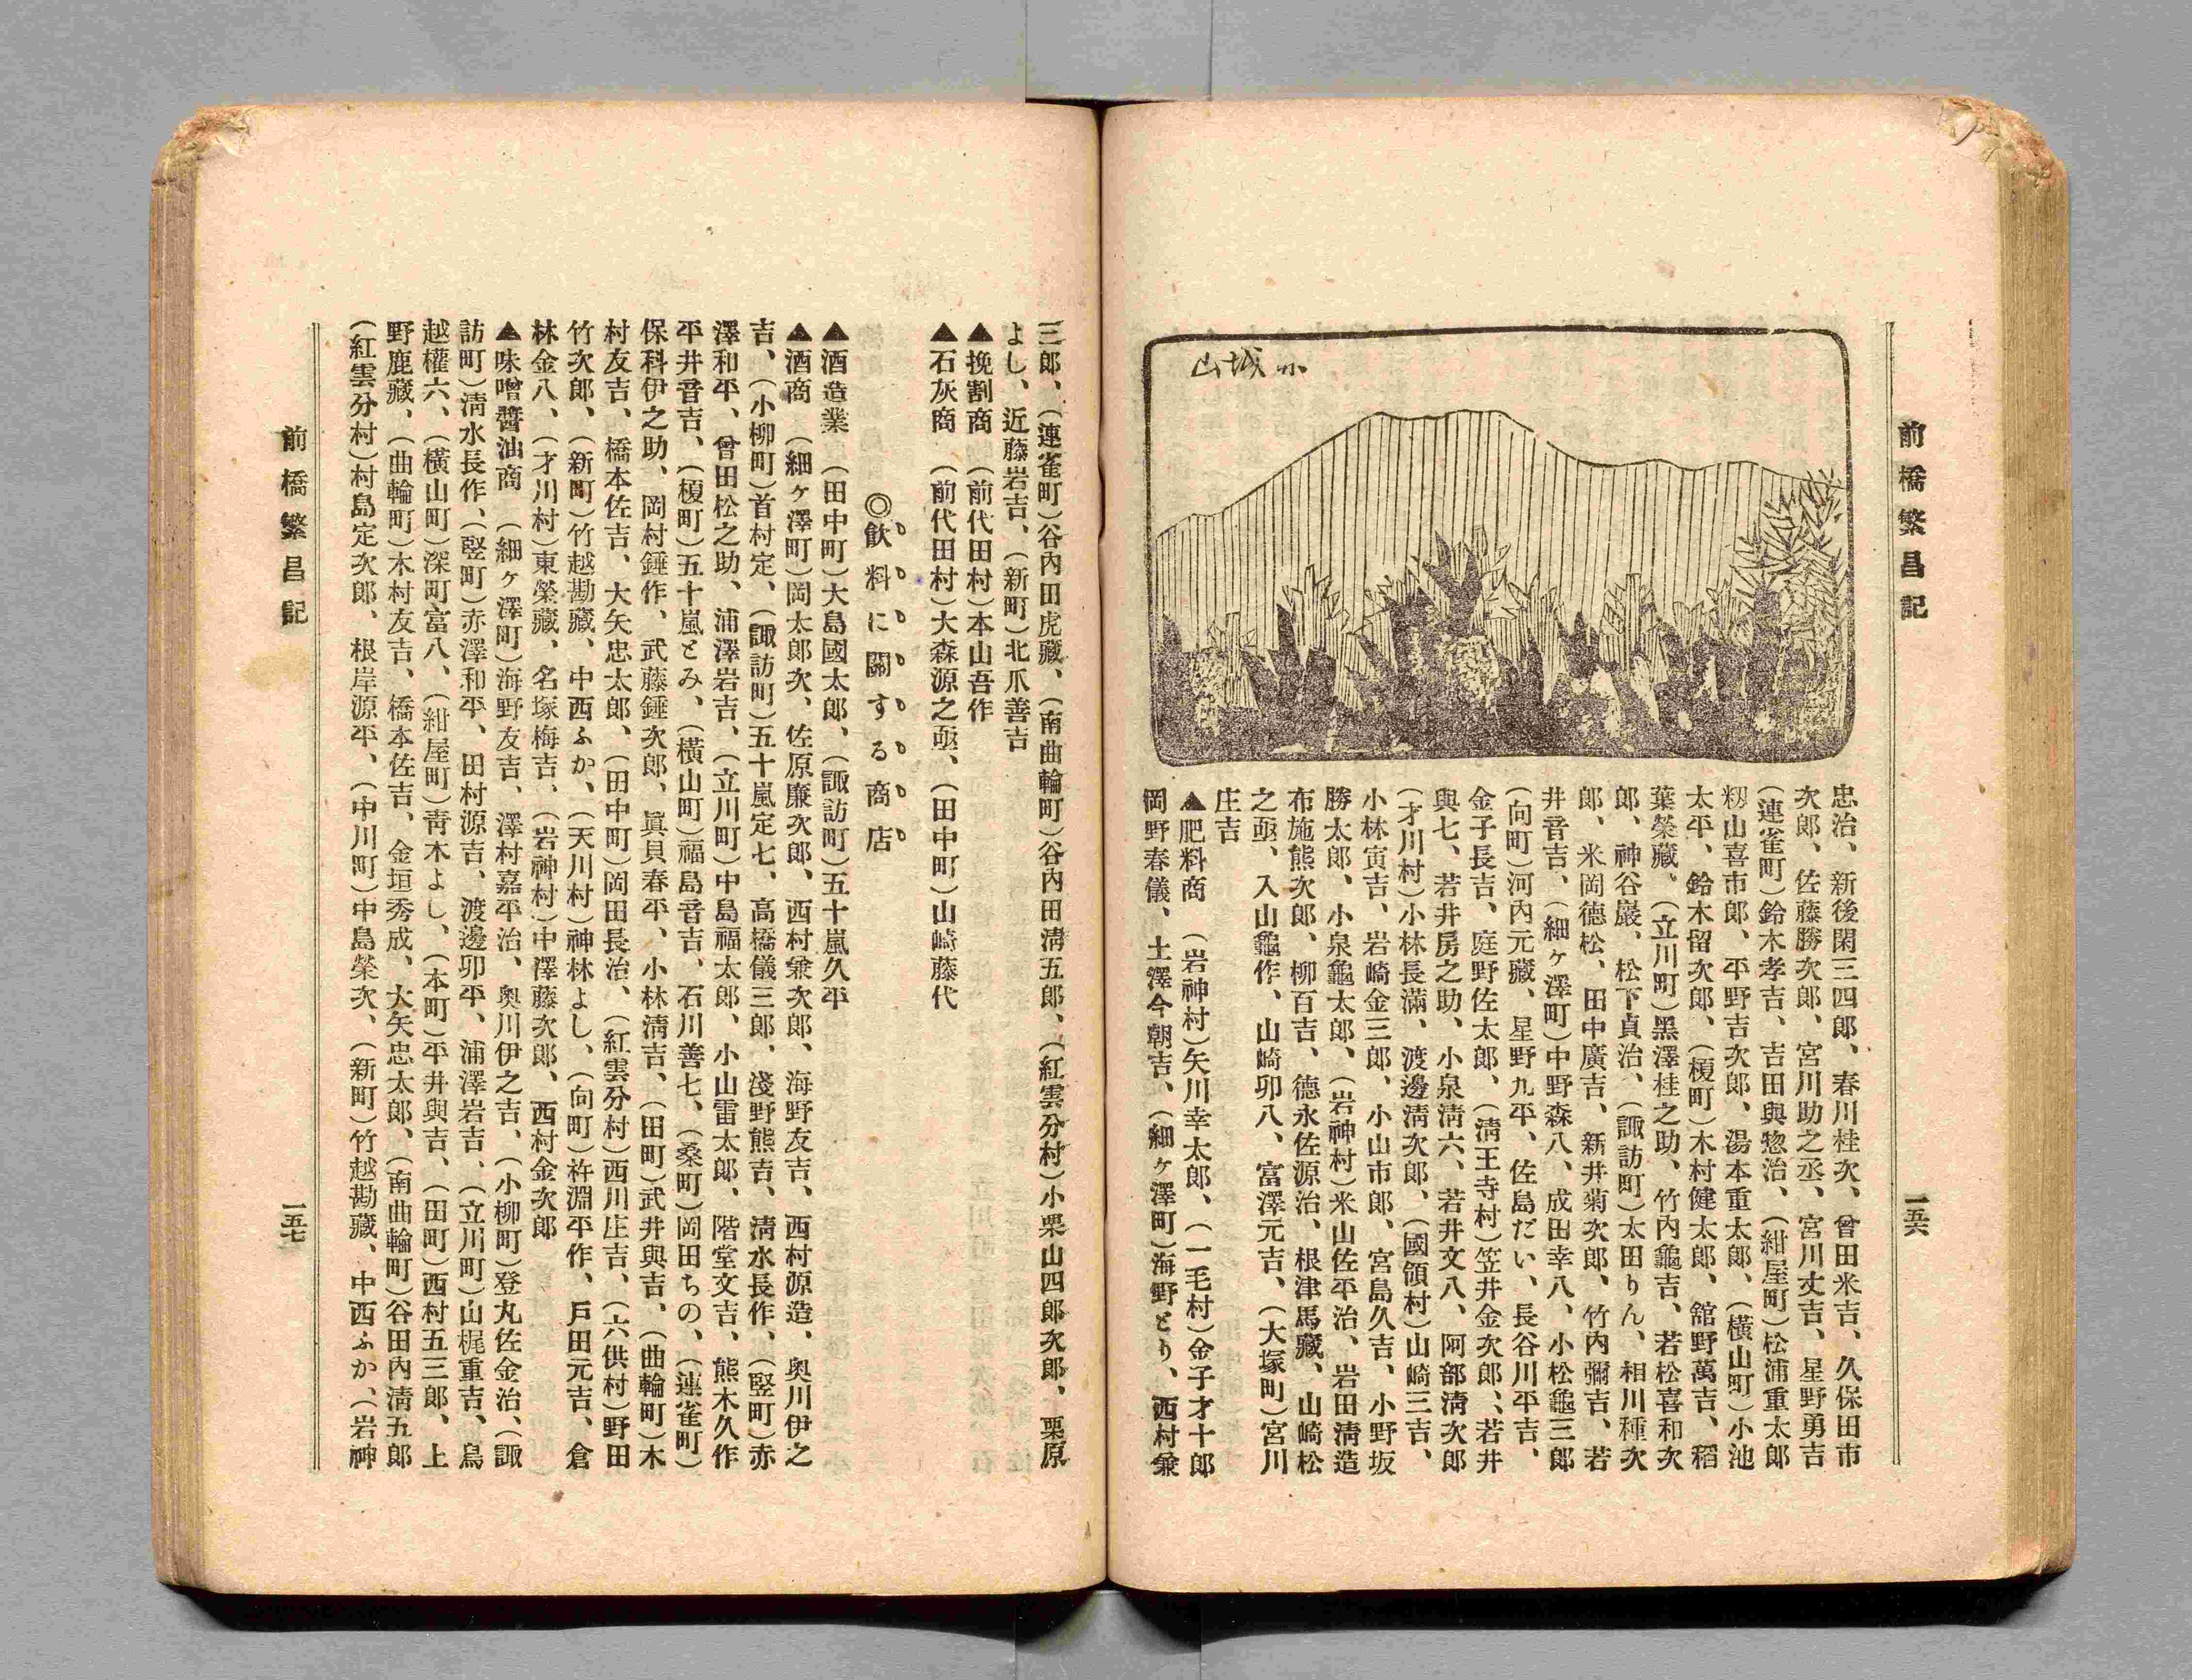 前橋繁昌記
一五六
山城赤
忠治、新後閑三四郎、春川桂次、曾田米吉、久保田市
次郎、佐藤勝次郎、宮川助之丞、宮川丈吉、星野勇吉
(連雀町)鈴木孝吉、吉田與惣治、(紺屋町)松浦重太郎
籾山喜市郎、平野吉次郎、湯本重太郎、(横山町)小池
太平、鈴木留次郎、(榎町)木村健太郎、舘野萬吉、稲
葉榮藏、(立川町)黑澤桂之助、竹内龜吉、若松喜和次
郎、神谷巖、松下貞治、(諏訪町)太田りん、相川種次
郎、米岡德松、田中廣吉、新井菊次郎、竹内彌吉、若
井音吉、(細ヶ澤町)中野森八、成田幸八、小松龜三郎
(向町)河内元藏、星野九平、佐島だい、長谷川平吉、
金子長吉、庭野佐太郎、(淸王寺村)笠井金次郎、若井
與七、若井房之助、小泉淸六、若井文八、阿部淸次郎
(才川村)小林長滿、渡邊淸次郎、(國領村)山崎三吉、
小林寅吉、岩崎金三郎、小山市郎、宮島久吉、小野坂
勝太郎、小泉龜太郎、(岩神村)米山佐平治、岩田淸造
布施熊次郎、柳百吉、德永佐源治、根津馬藏、山崎松
之亟、入山龜作、山崎卯八、富澤元吉、(大塚町)宮川
庄吉
▲肥料商　(岩神村)矢川幸太郎、(一毛村)金子才十郎
岡野春儀、土澤今朝吉、(細ヶ澤町)海野とり、西村兼
三郎、(連雀町)谷内田虎藏、(南曲輪町)谷内田淸五郎、(紅雲分村)小栗山四郎次郎、栗原
よし、近藤岩吉、(新町)北爪善吉
▲挽割商　(前代田村)本山吾作
▲石灰商　(前代田村)大森源之亟、(田中町)山崎藤代
◎飮料に關する商店
▲酒造業　(田中町)大島國太郎、(諏訪町)五十嵐久平
▲酒商　(細ヶ澤町)岡太郎次、佐原廉次郎、西村兼次郎、海野友吉、西村源造、奥川伊之
吉、(小柳町)首村定、(諏訪町)五十嵐定七、高橋儀三郎、淺野熊吉、淸水長作、(竪町)赤
澤和平、曾田松之助、浦澤岩吉、(立川町)中島福太郎、小山雷太郎、階堂文吉、熊木久作
平井音吉、(榎町)五十嵐とみ、(横山町)福島音吉、石川善七、(桑町)岡田ちの、(連雀町)
保科伊之助、岡村錘作、武藤錘次郎、眞貝春平、小林淸吉、(田町)武井與吉、(曲輪町)木
村友吉、橋本佐吉、大矢忠太郎、(田中町)岡田長治、(紅雲分村)西川庄吉、(六供村)野田
竹次郎、(新町)竹越勘藏、中西ふか、(天川村)神林よし、(向町)杵淵平作、戸田元吉、倉
林金八、(才川村)東榮藏、名塚梅吉、(岩神村)中澤藤次郎、西村金次郎
▲味噌醬油商　(細ヶ澤町)海野友吉、澤村嘉平治、奥川伊之吉、(小柳町)登丸佐金治、(諏
訪町)淸水長作、(竪町)赤澤和平、田村源吉、渡邊卯平、浦澤岩吉、(立川町)山梶重吉、鳥
越權六、(横山町)深町富八、(紺屋町)靑木よし、(本町)平井與吉、(田町)西村五三郎、上
野鹿藏、(曲輪町)木村友吉、橋本佐吉、金垣秀成、大矢忠太郎、(南曲輪町)谷田内淸五郎
(紅雲分村)村島定次郎、根岸源平、(中川町)中島榮次、(新町)竹越勘藏、中西ふか、(岩神
前橋繁昌記
一五七